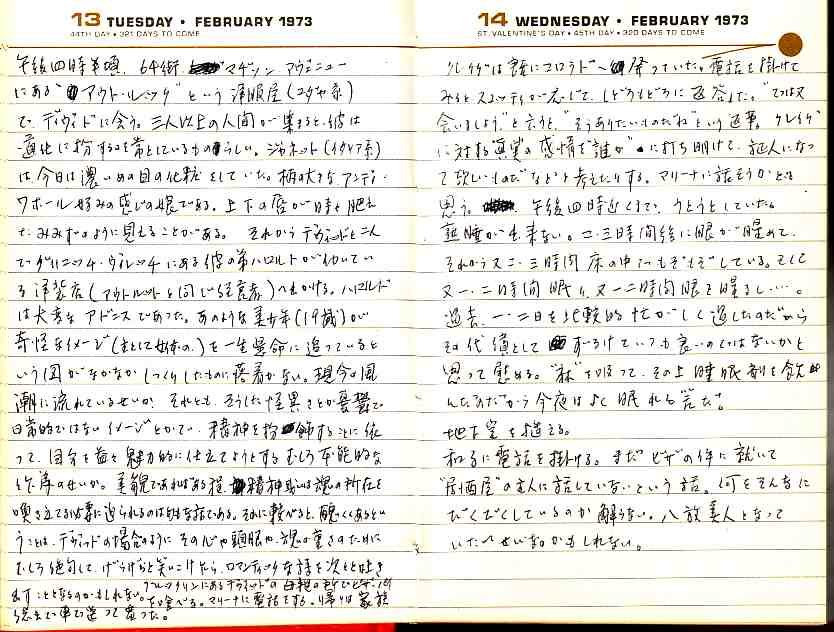 13 TUESDAY • FEBRUARY 1973
44TH DAY • 321 DAYS TO COME
午後四時半頃、64街、マヂソン アヴェニュー
にある "アウト・ルック" という洋服屋(ユダヤ系)
で、デヴィドに会う。三人以上の人間が集ると、彼は
道化に扮するを常としているものらしい。ジャネット(イタリア系)
は今日は濃いめの目の化粧をしていた。柄の大きなアンディ・
ワホール好みの感じの娘である。上下の唇が時々肥え
たみみずのように見えることがある。それからデヴィドと二人
でグリニッチ・ヴィレッヂにある彼の弟ハロルドが働いてい
る洋装店(アウトルックと同じ経営者)へ出かける。ハロルド
は大きなアドニスであった。あのような美少年(19歳)が
奇怪なイメージ(主として姿体の)を一生懸命に追っていると
いう図がなかなかしっくりしたものに落着かない。現今の風
潮に流れているせいか、それとも、そうした怪異さとか憂鬱で
日常的ではないイメージとかで、精神を粉飾することに依
って、自分を益々魅力的に仕立てようとするむしろ本能的な
作為のせいか。美貌であればある程、精神或いは魂の所在を
嗅ぎ立てる必要に迫られるのは
な話である。それに較べると、醜くくあるとい
うことは、デヴィドの場合のようにその心や頭脳や、魂の重さのために
むしろ絶句して、げらげらと笑いこけたり、ロマンティックな詩を次々と吐き
出すことになるのかもしれない。ブルックリンにあるデヴィドの母親の所でピザパイ
を食べる。マリーナに電話する。帰りは家族
車で送って貰った。
14 WEDNESDAY • FEBRUARY 1973
ST. VALENTINE'S DAY • 45TH DAY • 320 DAYS TO COME
クレイグは既にコロラドへ降っていた。電話を掛けて
みるとスコッティが応じて、しどろもどろに返答した。"では又
会いましょう" と言うと、"そうありたいものだね" という返事。クレイグ
に対する真実の感情を誰かに打ち明けて、証人になっ
て欲しいものだなどと考えたりする。マリーナに話そうかとも
思う。午後四時近くまで、うとうとしていた。
熟睡が出来ない。二、三時間後に眼が醒めて、
それから又二、三時間床の中でもぞもぞしている。そして
又一、二時間眠り、又一、二時間眼を醒まし……。
過去、一、二日を比較的忙がしく過したのだから
その代償としてずるけていても良いのではないかと
思って慰める。"私" を吸って、その上睡眠剤を飲
んだのだから今夜はよく眠れる筈だ。
地下室を掃える。
和子に電話を掛ける。まだビザの件に就いて
"居酒屋" の主人に話していないという話。何をそんなに
びくびくしているのか解らない。八放美人となって
いたいせいなのかもしれない。